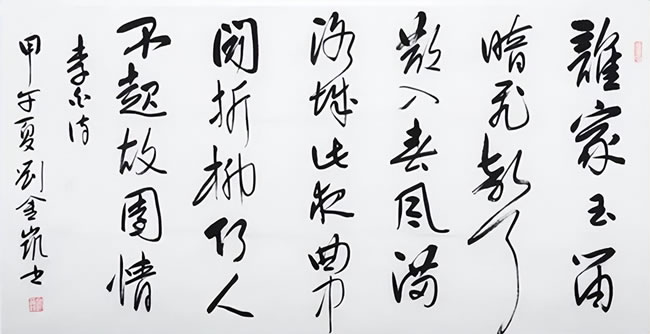 誰家玉笛
暗飛聲
散入春風滿
洛城此夜曲中
聞折柳何人
不起故園情
李白詩
甲午夏劉金凱書